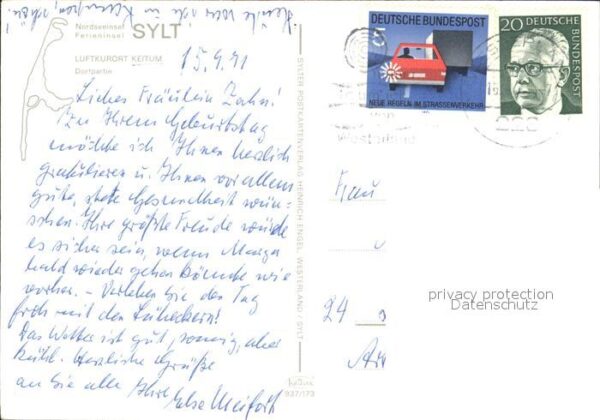 Nordseeinsel
Ferieninsel SYLT
LUFTKURORT KEITUM
Dorfpartie
15.9.71
Liebes Fräulein Zahn!
Zu Ihrem Geburtstag
möchte ich Ihnen herzlich
gratulieren u. Ihnen vor allem
gute, stete Gesundheit wün-
schen. Ihre größte Freude würde
es sicher sein, wenn
bald wieder gehen könnte wie
vorher. – Verleben Sie den Tag
froh mit den Lübeckern!
Das Wetter ist gut, sonnig, aber
kühl. Herzliche Grüße
an Sie alle Ihre
Else
SYLTER POSTKARTENVERLAG HEINRICH ENGEL, WESTERLAND / SYLT
937/173
5 DEUTSCHE BUNDESPOST
NEUE REGELN IM STRASSENVERKEHR
20 DEUTSCHE
BUNDESPOST
Westerland
Frau
24
privacy protection
Datenschutz